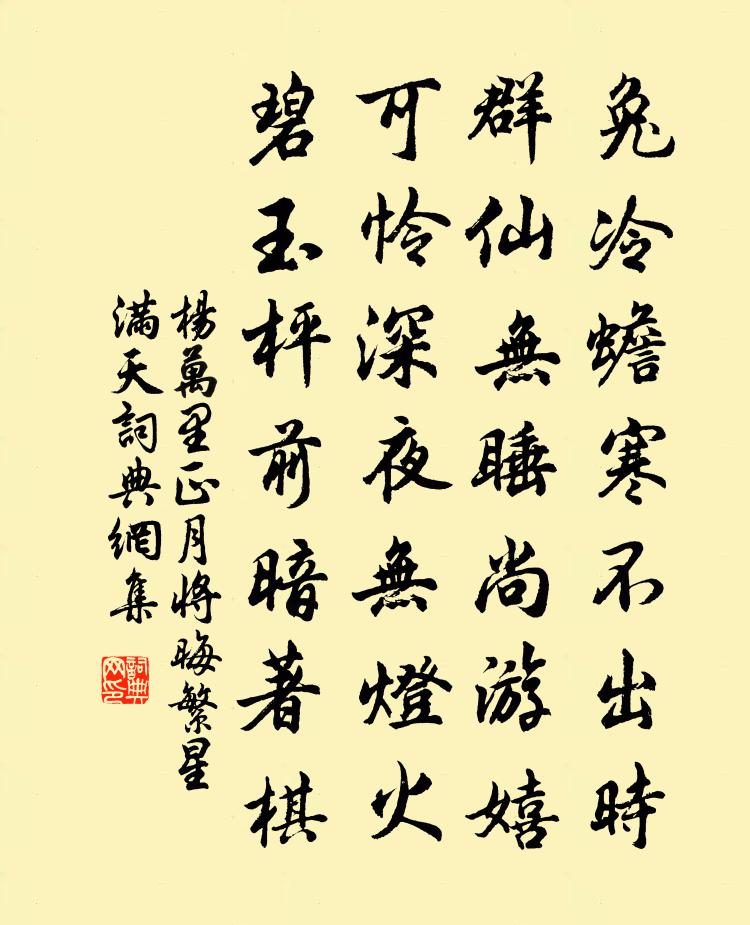 兔冷蟾寒不出時
群仙無睡尚游嬉
可怜深夜無燈火
碧玉枰前暗著棋
楊萬里正月將晦繁星
滿天詞典網集
詞典网印